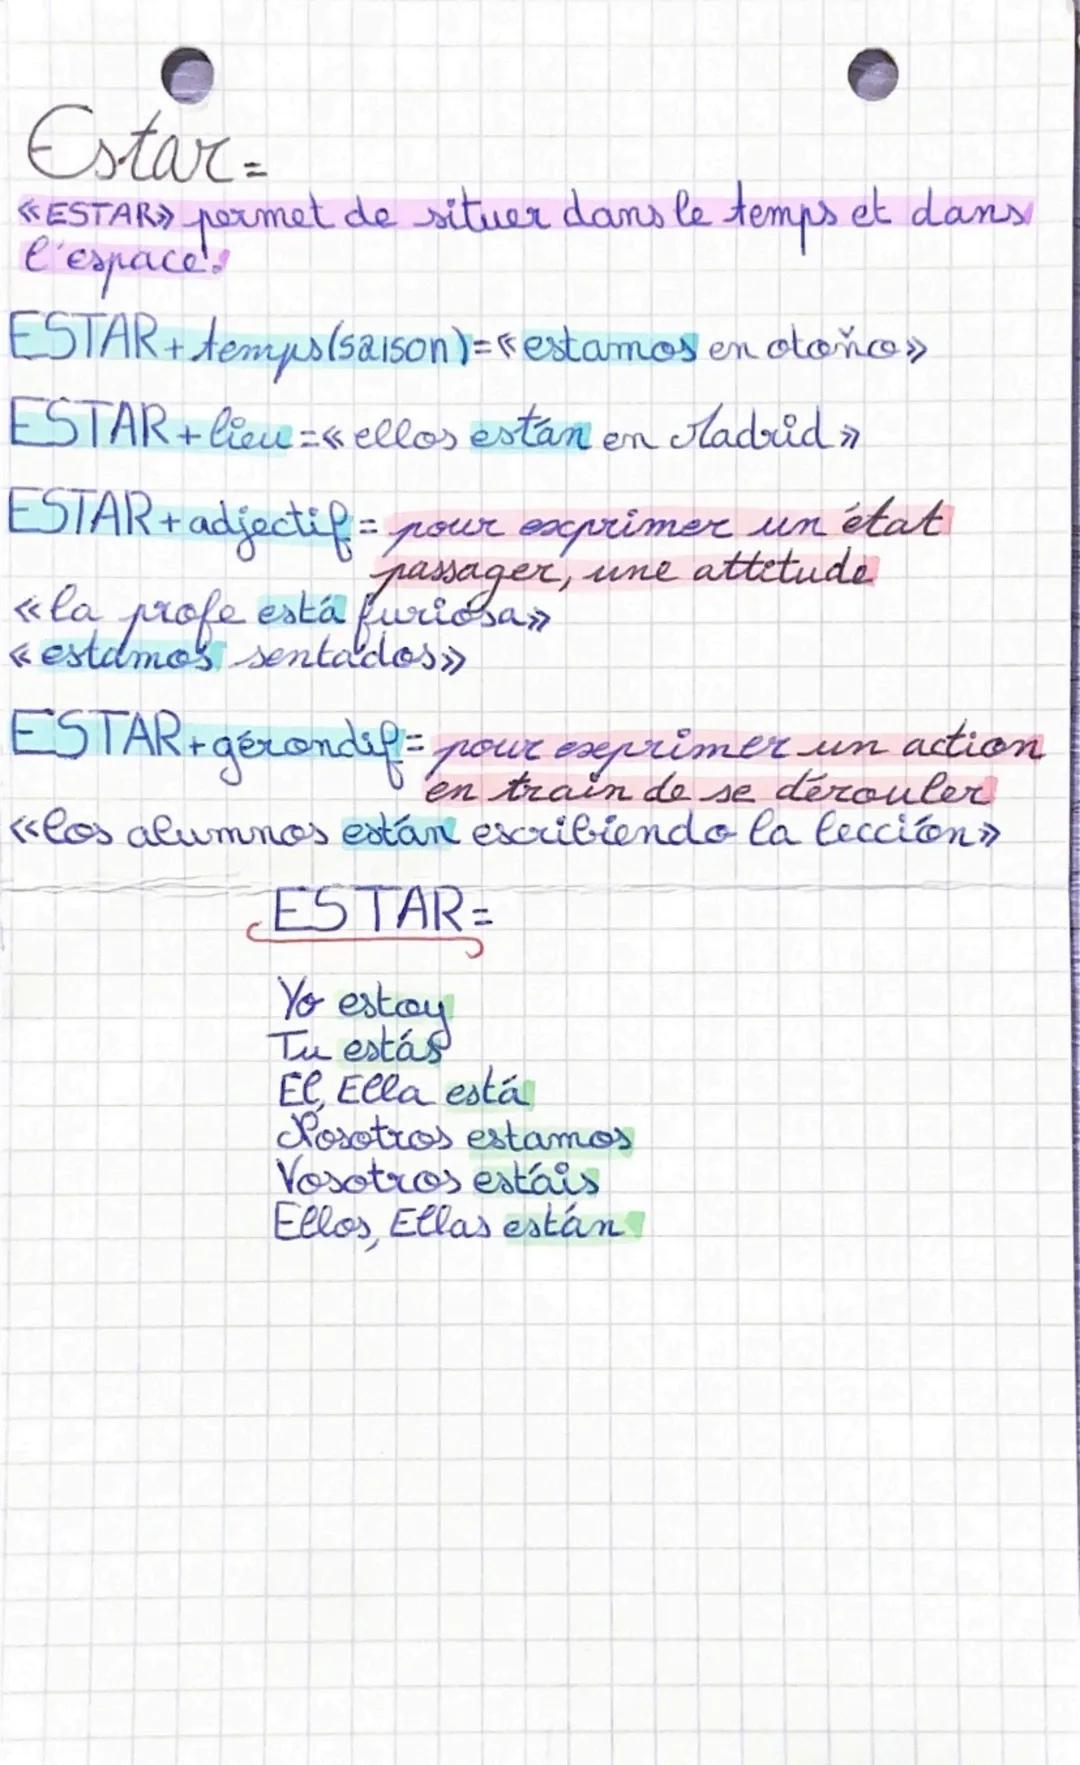 Estar=
«ESTAR» permet de situer dans le temps et dans
l'espace.
ESTAR+temps(saison)=«estamos en otoño»
ESTAR+lieu=«ellos están en Madrid»
ESTAR+adjectif= pour exprimer un état
passager, une attitude
«la profe está furiosa»
«estamos sentados»
ESTAR+gérondif= pour exprimer un action
en train de se dérouler
«los alumnos están escribiendo la lección»
ESTAR=
Yo estoy
Tu estás
El, Ella está
Nosotros estamos
Vosotros estáis
Ellos, Ellas están